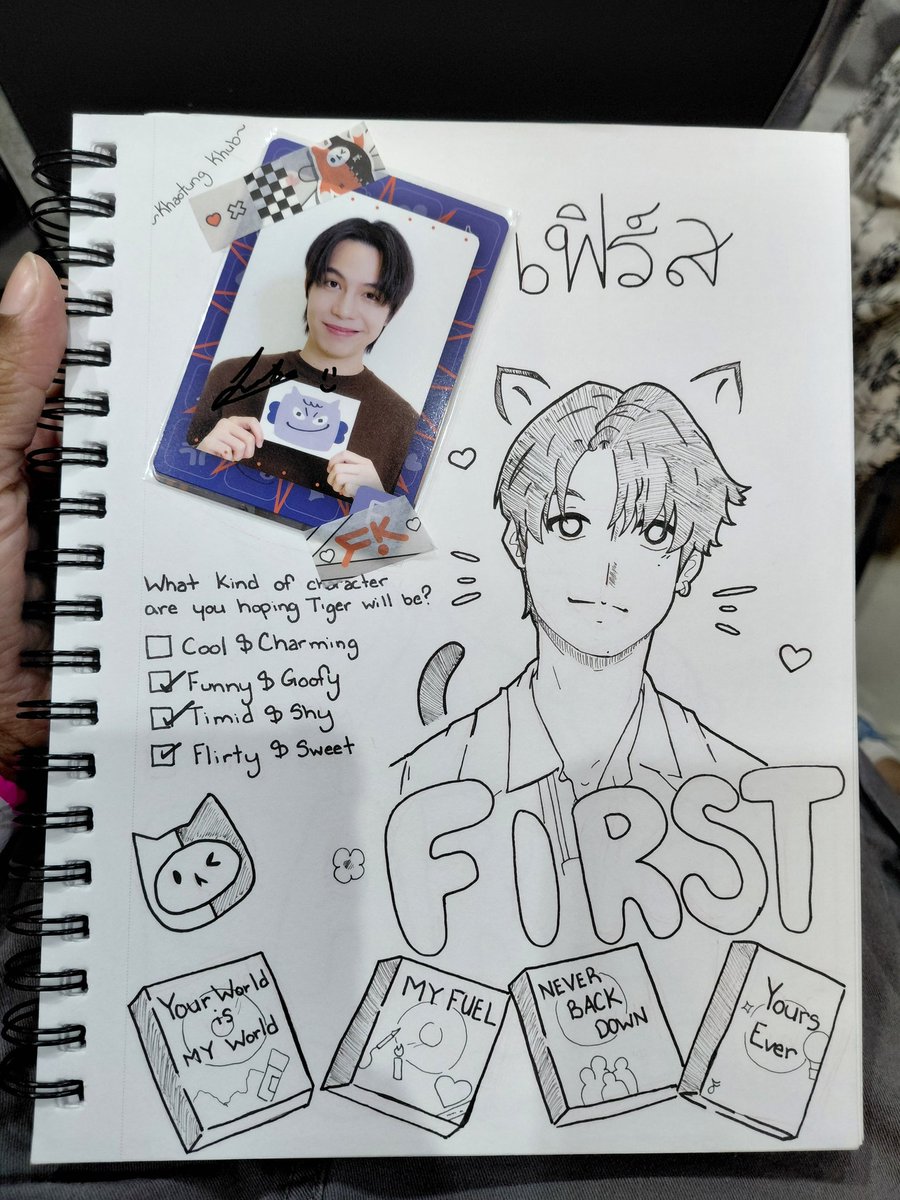 ~Khaotung Khub~
เฟิร์ส
FK
What Kind of character
are you hoping Tiger will be?
Cool & Charming
Funny & Goofy
Timid & Shy
Flirty & Sweet
FIRST
Your World
is
MY World
MY FUEL
NEVER
BACK
DOWN
Yours
Ever